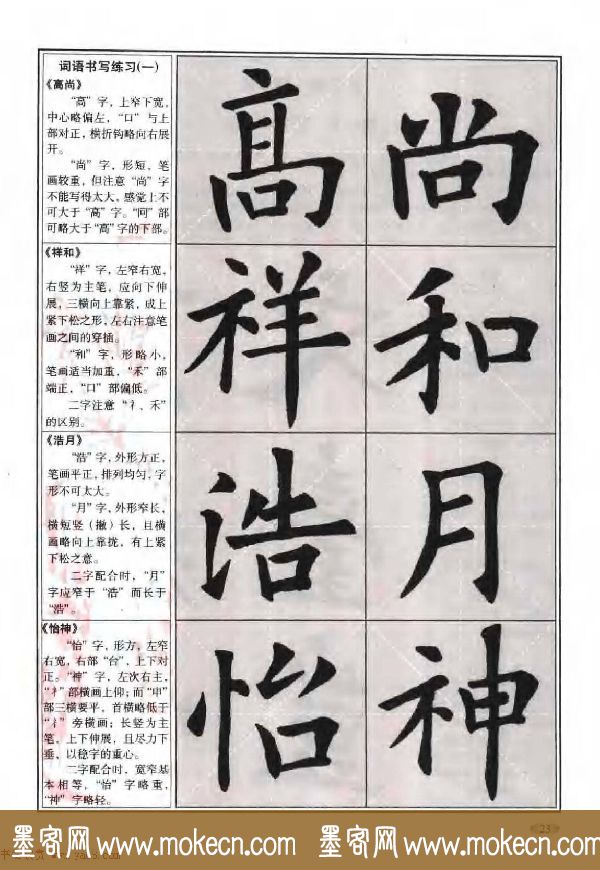 词语书写练习(一)
《高尚》
“高”字，上窄下宽，
中心略偏左，“口”与上
部对正，横折钩略向右展
开。
“尚”字，形短，笔
画较重，但注意“尚”字
不能写得太大，感觉上不
可大于“高”字。“冋”部
可略大于“高”字的下部。
高 尚
《祥和》
“祥”字，左窄右宽，
右竖为主笔，应向下伸
展，三横向上靠紧，成上
紧下松之形，左右注意笔
画之间的穿插。
“和”字，形略小，
笔画适当加重，“禾”部
端正，“口”部偏低。
二字注意“礻、禾”
的区别。
祥 和
《浩月》
“浩”字，外形方正，
笔画平正，排列均匀，字
形不可太大。
“月”字，外形窄长，
横短竖（撇）长，且横
画略向上靠拢，有上紧
下松之意。
二字配合时，“月”
字应窄于“浩”而长于
“浩”。
浩 月
《怡神》
“怡”字，形方，左窄
右宽，右部“台”，上下对
正。“神”字，左次右主，
“礻”部横画上仰；而“申”
部三横要平，首横略低于
“礻”旁横画；长竖为主
笔，上下伸展，且尽力下
垂，以稳字的重心。
二字配合时，宽窄基
本相等，“怡”字略重，
“神”字略轻。
怡 神
23
墨客网 www.mokecn.com 墨客网 www.mokecn.com